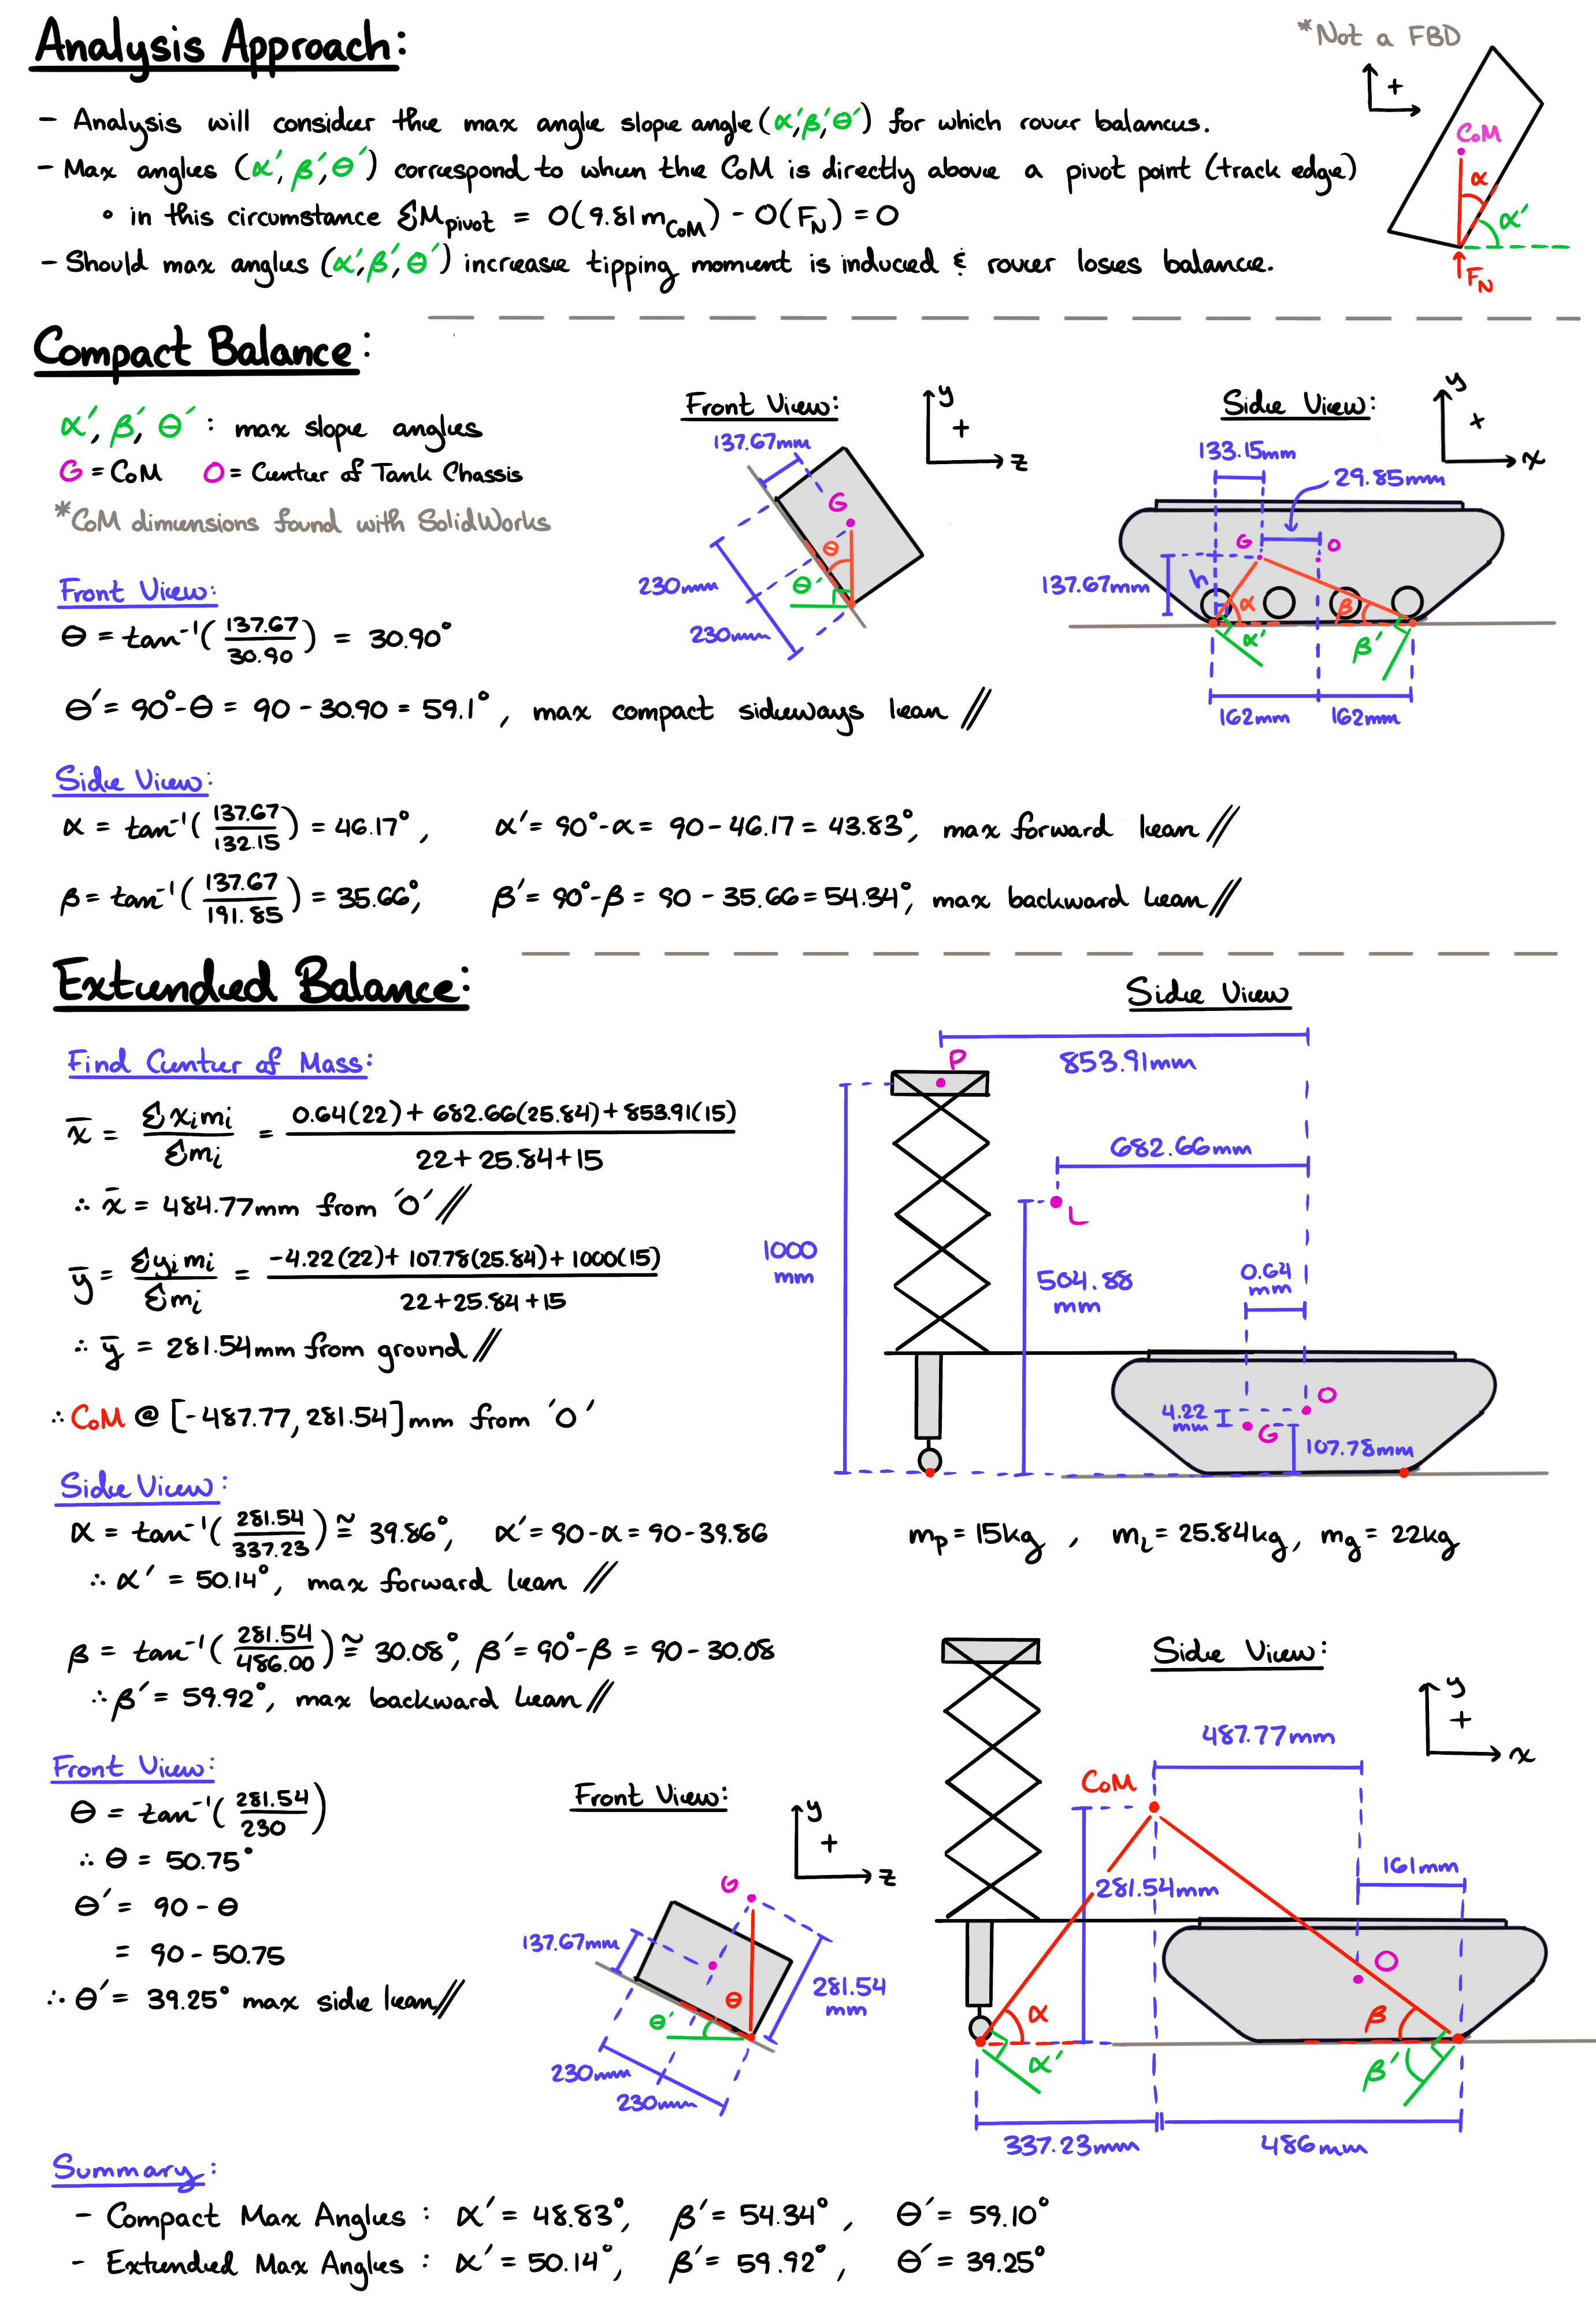 Analysis Approach:
*Not a FBD
+
- Analysis will consider the max angle slope angle (α′,β′,θ′) for which rover balances.
- Max angles (α′,β′,θ′) correspond to when the CoM is directly above a pivot point (track edge)
∘ in this circumstance ΣM_pivot = 0(9.81m_CoM) - 0(F_N) = 0
- Should max angles (α′,β′,θ′) increase tipping moment is induced & rover loses balance.
CoM
α
α′
F_N
Compact Balance:
α′, β′, θ′ : max slope angles
G = CoM O = Center of Tank Chassis
*CoM dimensions found with SolidWorks
Front View:
y
+
z
137.67mm
G
θ
θ′
230mm
230mm
Side View:
y
+
x
133.15mm
29.85mm
G
O
137.67mm
h
α
β
α′
β′
162mm
162mm
Front View:
θ = tan⁻¹(137.67/30.90) = 30.90°
θ′ = 90°-θ = 90 - 30.90 = 59.1°, max compact sideways lean //
Side View:
α = tan⁻¹(137.67/132.15) = 46.17°, α′ = 90°-α = 90 - 46.17 = 43.83°, max forward lean //
β = tan⁻¹(137.67/191.85) = 35.66°, β′ = 90°-β = 90 - 35.66 = 54.34°, max backward lean //
Extended Balance:
Find Center of Mass:
x̄ = Σxᵢmᵢ/Σmᵢ = 0.64(22) + 682.66(25.84) + 853.91(15) / 22 + 25.84 + 15
∴ x̄ = 484.77mm from 'O' //
ȳ = Σyᵢmᵢ/Σmᵢ = -4.22(22) + 107.78(25.84) + 1000(15) / 22 + 25.84 + 15
∴ ȳ = 281.54mm from ground //
∴ CoM @ [-487.77, 281.54] mm from 'O'
Side View
853.91mm
P
682.66mm
L
1000
mm
504.88
mm
0.64
mm
O
4.22
mm
G
107.78mm
m_p = 15kg , m_L = 25.84kg, m_g = 22kg
Side View:
α = tan⁻¹(281.54/337.23) ≅ 39.86°, α′ = 90 - α = 90 - 39.86
∴ α′ = 50.14°, max forward lean //
β = tan⁻¹(281.54/486.00) ≅ 30.08°, β′ = 90°-β = 90 - 30.08
∴ β′ = 59.92°, max backward lean //
Front View:
θ = tan⁻¹(281.54/230)
∴ θ = 50.75°
θ′ = 90 - θ
= 90 - 50.75
∴ θ′ = 39.25° max side lean //
Front View:
y
+
z
G
137.67mm
θ
θ′
281.54
mm
230mm
230mm
Side View:
y
+
x
487.77mm
CoM
161mm
281.54mm
O
α
β
α′
β′
337.23mm
486mm
Summary:
- Compact Max Angles : α′ = 48.83°, β′ = 54.34°, θ′ = 59.10°
- Extended Max Angles : α′ = 50.14°, β′ = 59.92°, θ′ = 39.25°